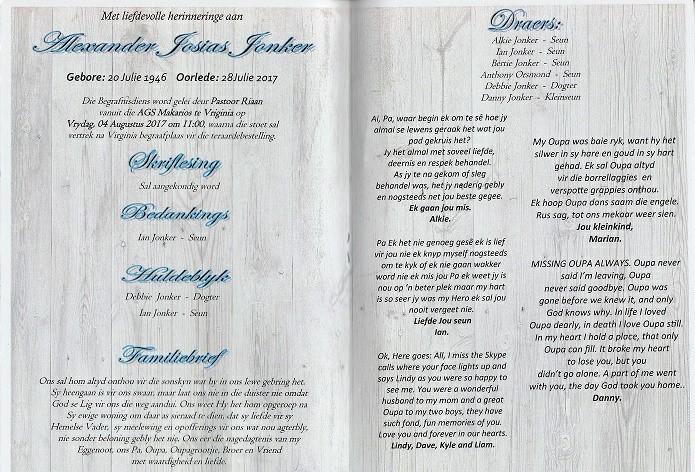 Met liefdevolle herinneringe aan
Alexander Josias Jonker
Gebore: 20 Julie 1946 Oorlede: 28Julie 2017
Die Begrafnisdiens word gelei deur Pastoor Riaan
vanuit die AGS Makarios te Vriginia op
Vrydag, 04 Augustus 2017 om 11:00, waarna die stoet sal
vertrek na Virginia begraafplaas vir die teraardebestelling.
Skriflesing
Sal aangekondig word
Bedankings
Ian Jonker - Seun
Huldeblyk
Debbie Jonker - Dogter
Ian Jonker - Seun
Familiebrief
Ons sal hom altyd onthou vir die sonskyn wat hy in ons lewe gebring het.
Sy heengaan is vir ons swaar, maar laat ons nie in die duister nie omdat
God se Lig vir ons die weg aandui. Ons weet Hy het hom opgeroep na
Sy ewige woning om daar as sieraad te dien, dat sy liefde vir sy
Hemelse Vader, sy meelewing en opofferings vir ons wat nou agterbly,
nie sonder beloning gebly het nie. Ons eer die nagedagtenis van my
Eggenoot, ons Pa, Oupa, Oupagrootjie, Broer en Vriend
met waardigheid en liefde.
Draers:
Alkie Jonker - Seun
Ian Jonker - Seun
Bertie Jonker - Seun
Anthony Orsmond - Seun
Debbie Jonker - Dogter
Danny Jonker - Kleinseun
Ai, Pa, waar begin ek om te sê hoe jy
almal se lewens geraak het wat jou
pad gekruis het?
Jy het almal met soveel liefde,
deernis en respek behandel.
As jy te na gekom of sleg
behandel was, het jy nederig gebly
en nogsteeds net jou beste gegee.
Ek gaan jou mis.
Alkie.
Pa Ek het nie genoeg gesê ek is lief
vir jou nie ek knyp myself nogsteeds
om te kyk of ek nie gaan wakker
word nie ek mis jou Pa ek weet jy is
nou op 'n beter plek maar my hart
is so seer jy was my Hero ek sal jou
nooit vergeet nie.
Liefde Jou seun
Ian.
Ok, Here goes: All, I miss the Skype
calls where your face lights up and
says Lindy as you were so happy to
see me. You were a wonderful
husband to my mom and a great
Oupa to my two boys, they have
such fond, fun memories of you.
Love you and forever in our hearts.
Lindy, Dave, Kyle and Liam.
My Oupa was baie ryk, want hy het
silwer in sy hare en goud in sy hart
gehad. Ek sal Oupa altyd
vir die borrellaggies en
verspotte grappies onthou.
Ek hoop Oupa dans saam die engele.
Rus sag, tot ons mekaar weer sien.
Jou kleinkind,
Marian.
MISSING OUPA ALWAYS. Oupa never
said I'm leaving, Oupa
never said goodbye. Oupa was
gone before we knew it, and only
God knows why. In life I loved
Oupa dearly, in death I love Oupa still.
In my heart I hold a place, that only
Oupa can fill. It broke my heart
to lose you, but you
didn't go alone. A part of me went
with you, the day God took you home..
Danny.